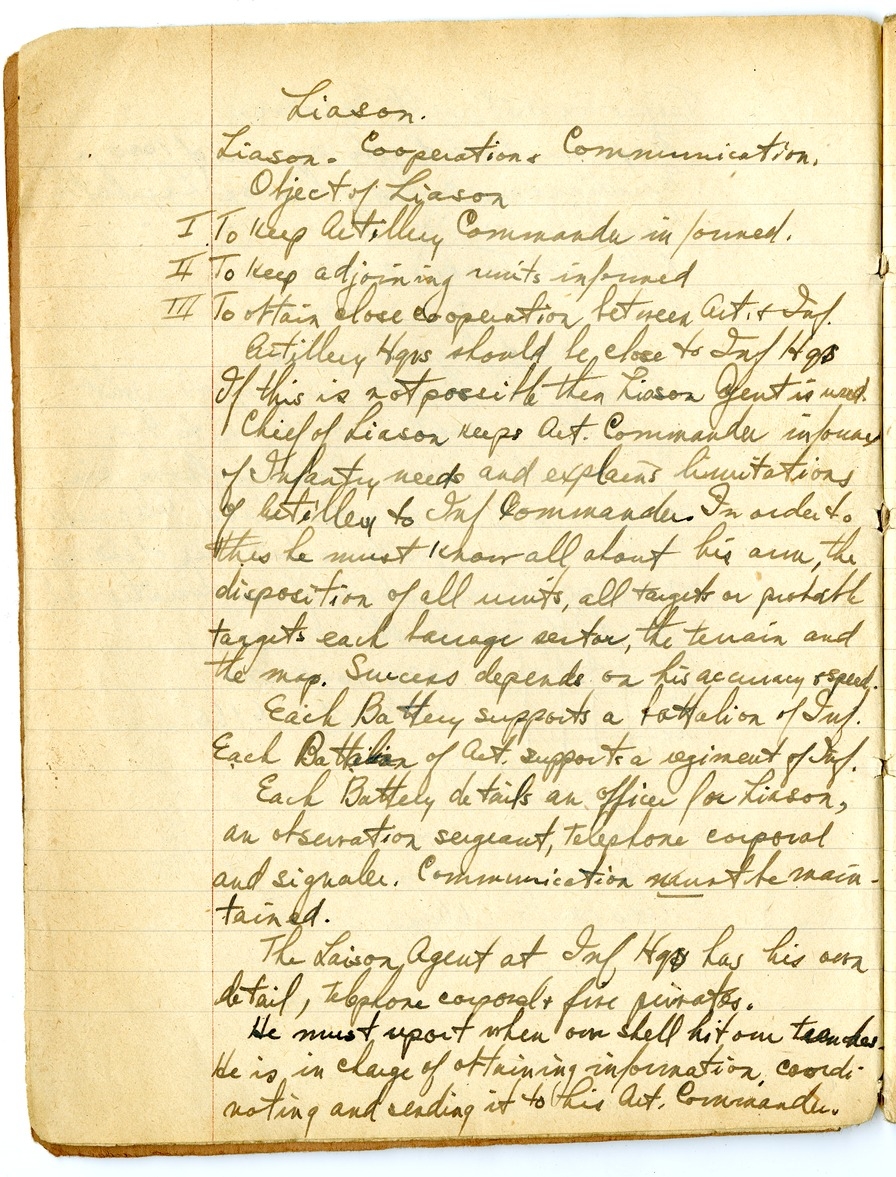 Liason.
Liason - Cooperation & Communication.
Object of Liason
I To keep Artillery Commander informed.
II To keep adjoining units informed
III To obtain close cooperation between Art. & Inf.
Artillery Hqrs should be close to Inf Hqs
If this is not possible then Liason Agent is used.
Chief of Liason keeps Art. Commander informed
of Infantry needs and explains limitations
of Artillery to Inf Commander. In order to
this he must know all about his arm, the
disposition of all units, all targets or probable
targets each barrage sector, the terrain and
the map. Success depends on his accuracy & speed.
Each Battery supports a battalion of Inf.
Each Battalion of Art. supports a regiment of Inf.
Each Battery details an officer for Liason,
an observation sergeant, telephone corporal
and signaler. Communication must be main-
tained.
The Laison Agent at Inf Hqs has his own
detail, telephone corporal & five privates.
He must report when own shell hit our trenches.
He is in charge of obtaining information, coordi-
nating and sending it to this Art. Commander.